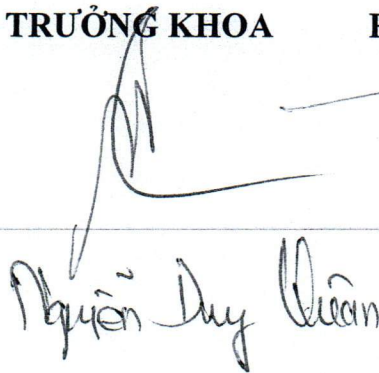 TRƯỞNG KHOA
Nguyễn Duy Xuân